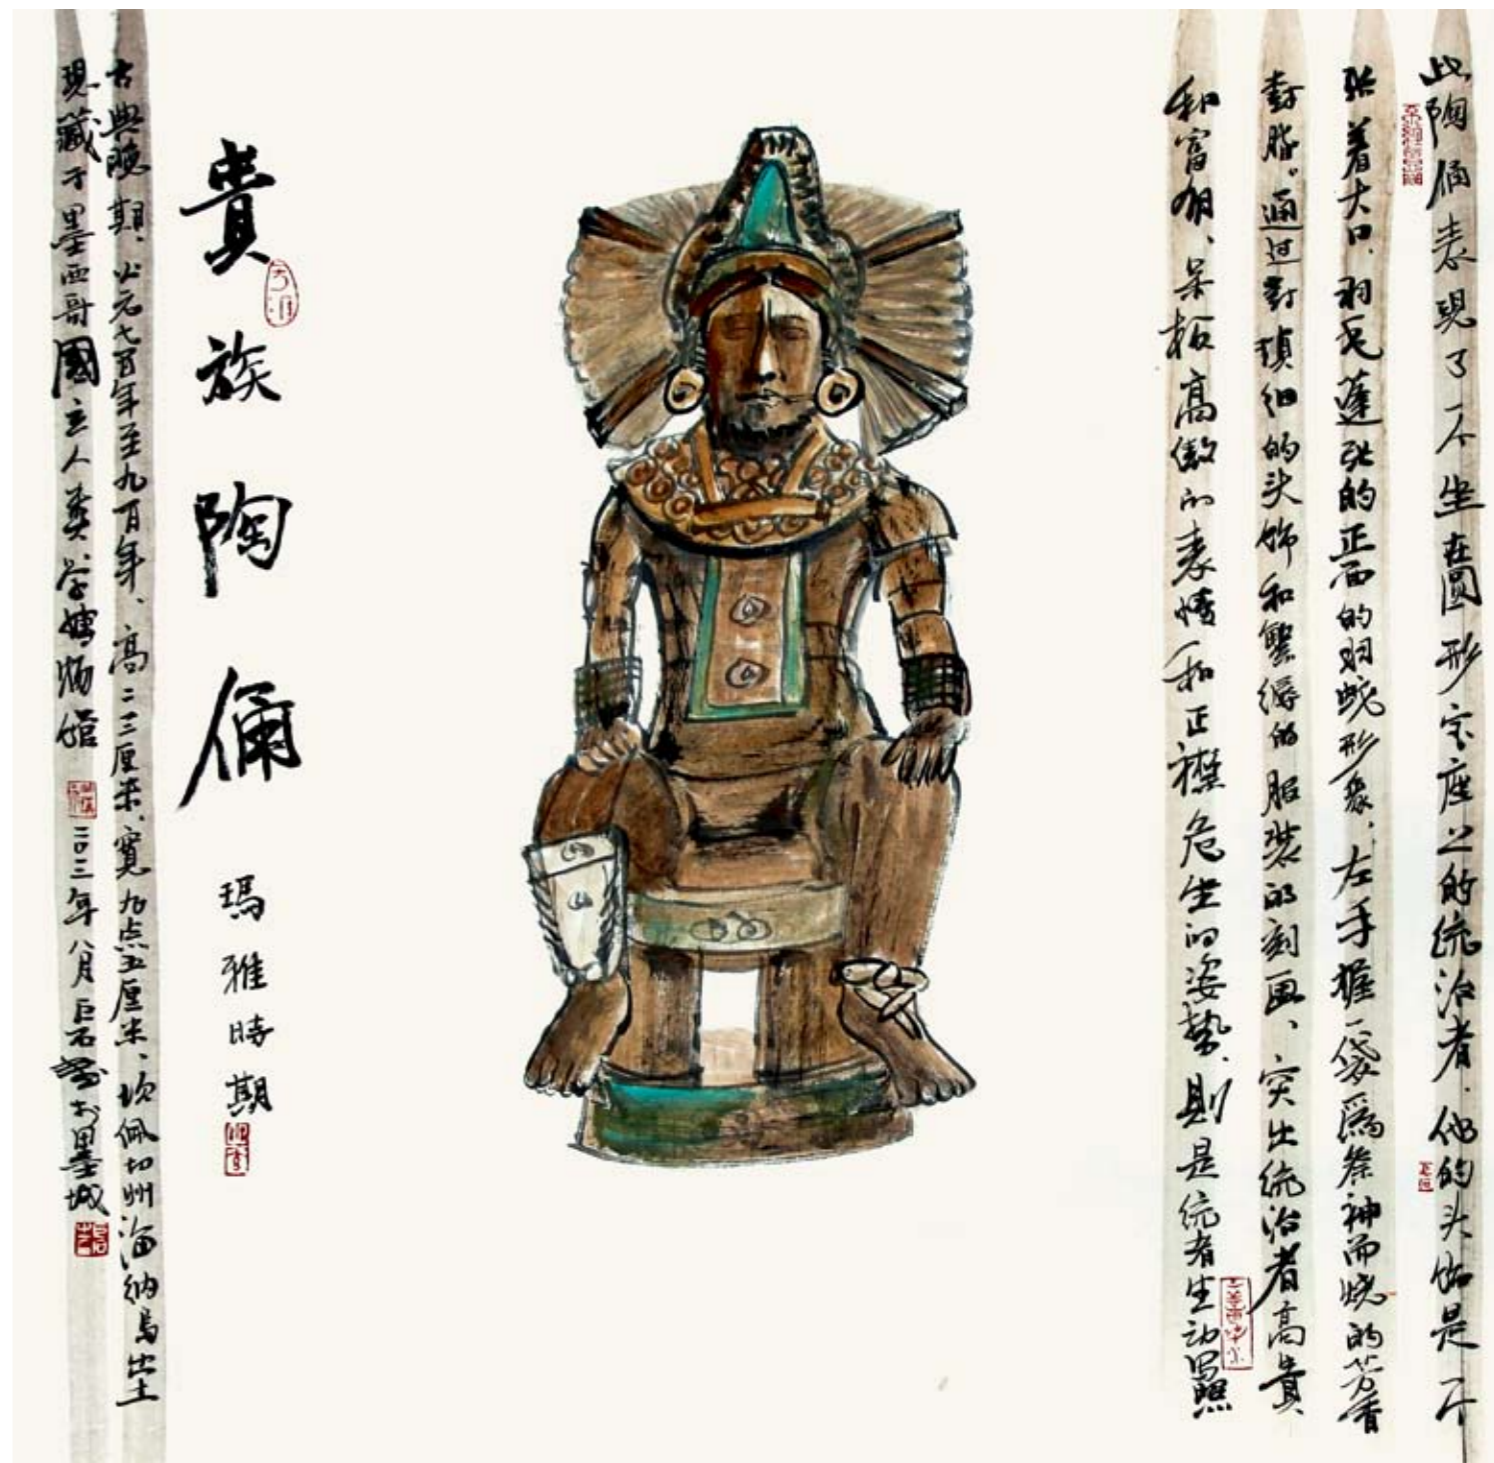 此陶俑表现了一个坐在圆形宝座上的统治者，他的头饰是一个
张着大口，羽毛蓬张的正面的羽蛇形象，左手握一袋为祭神而烧的芳香
树脂。通过对琐细的头饰和繁縟的服装的刻画、突出统治者高贵
和富有、呆板高傲的表情和正襟危坐的姿势，则是统者生动写照
貴族陶俑
瑪雅時期
古典晚期、公元七百年至九百年、高二三厘米、寬九点五厘米、坎佩切州海纳島出土
現藏于墨西哥國立人类学博物馆
二〇一二年八月巨石写於墨城